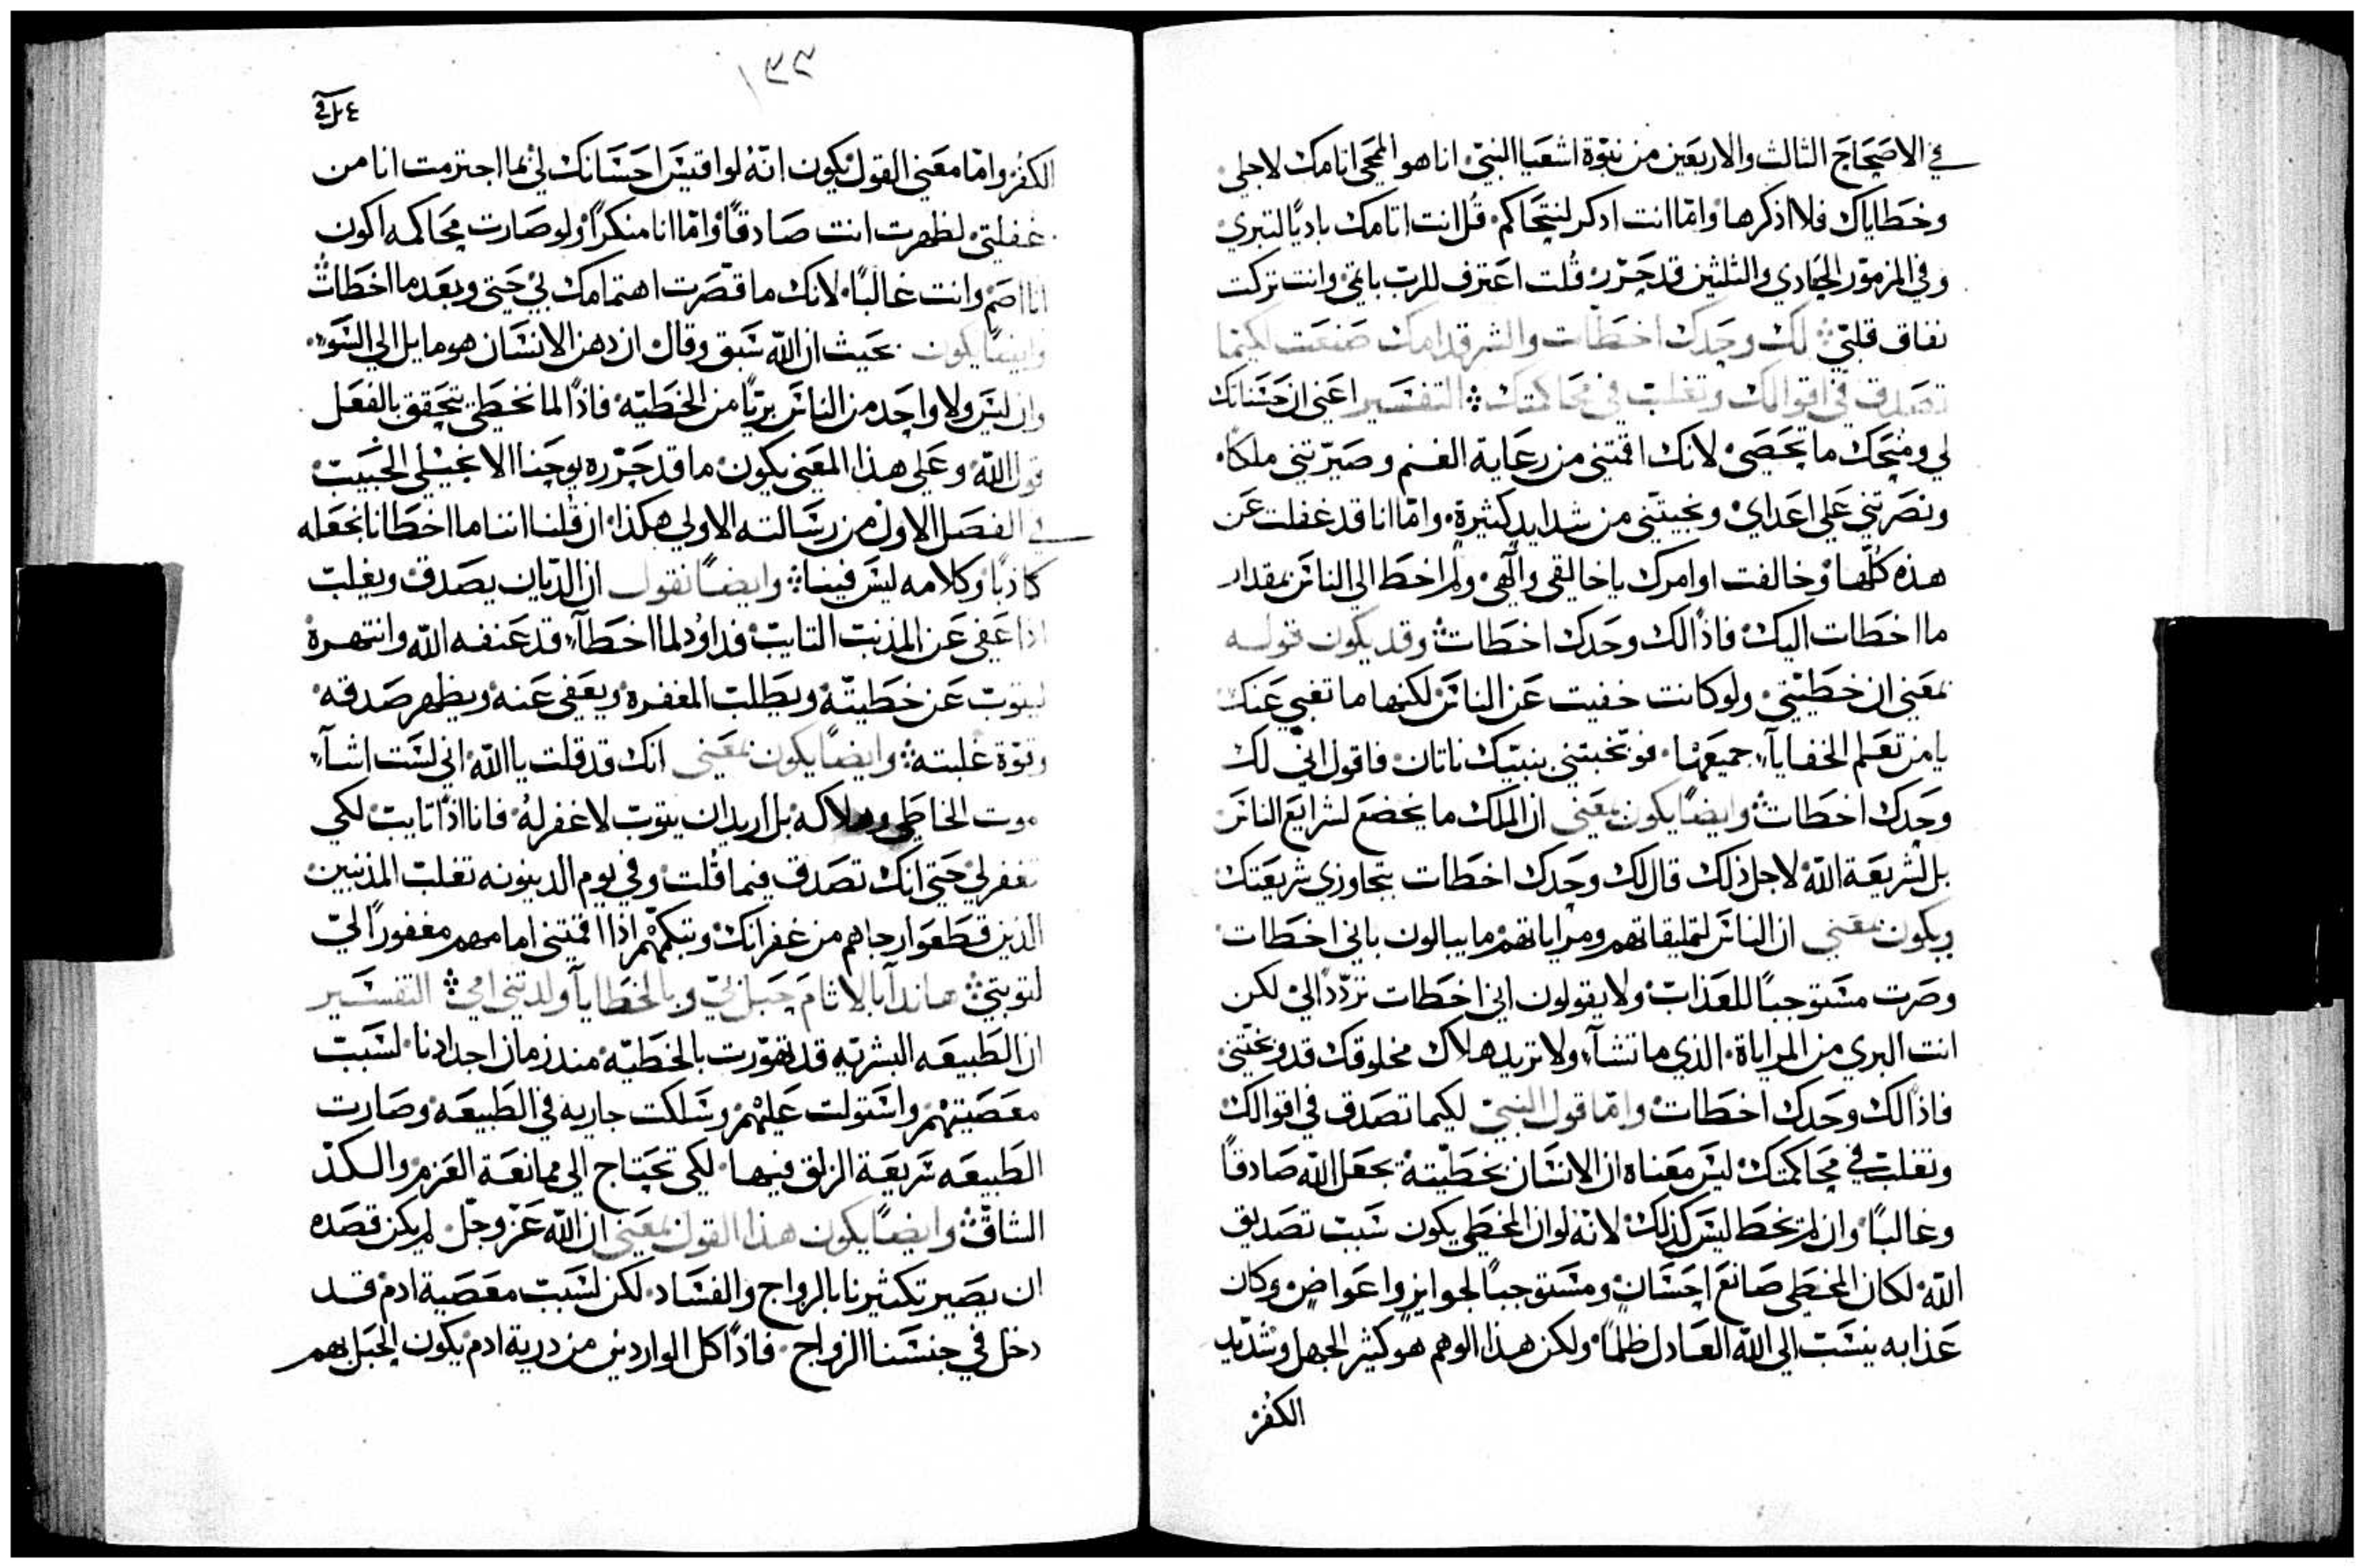 في الاصحاح الثالث والاربعين من نبوة اشعيا النبي انا هو الممحي اتامك لاجلي
وخطاياك فلا اذكرها واما انت ادكر لنتحاكم قل انت اتامك باديًا لتبرى
وفي المزمور الحادي والثلثين قد حرر قلت اعترف للرب باثمي وانت تركت
نفاق قلبي لك وحدك اخطات والشر قدامك صنعت لكيما
تصدق في اقوالك وتغلب في محاكمتك التفسير اعني ان حسناتك
لي ومنحك ما تحصى لانك اقمتني من رعاية الغنم وصيرتني ملكًا
ونصرتني على اعداي ونجيتني من شدايد كثيرة واما انا قد غفلت عن
هذه كلها وخالفت اوامرك يا خالقي والهي ولم اخط الى الناس بمقدار
ما اخطات اليك فاذًا لك وحدك اخطات وقد يكون قوله
بمعنى ان خطيتي ولو كانت خفيت عن الناس لكنها ما تغبي عنك
يا من تعلم الخفايا جميعها فوبختني بنبيك ناتان فاقول اني لك
وحدك اخطات وايضًا يكون بمعنى ان الملك ما يخضع لشرايع الناس
بل لشريعة الله لاجل ذلك قال لك وحدك اخطات بتجاوزي شريعتك
ويكون بمعنى ان الناس لتمليقاتهم ومراياتهم ما يبالون باني اخطات
وصرت مستوجبًا للعذاب ولا يقولون اني اخطات تردّدًا لي لكن
انت البري من المراياة الذي ما تشآء ولا تريد هلاك مخلوقك قد وبختني
فاذًا لك وحدك اخطات واما قول النبي لكيما تصدق في اقوالك
وتغلب في محاكمتك ليس معناه ان الانسان بخطيته يجعل الله صادقًا
وغالبًا وان لم يخط ليس كذلك لانه لو ان المخطي يكون سبب تصديق
الله لكان المخطي صانع احسان ومستوجبًا لجوايز واعواض وكان
عذابه ينسب الى الله العادل ظلمًا ولكن هذا الوهم هو كثير الجهل وشديد
الكفر
١٣٣
الكفر واما معنى القول يكون انه لو اقيس احسانك لي بما اجترمت انا من
غفلتي لظهرت انت صادقًا واما انا منكرًا ولو صارت محاكمه اكون
انا اصم وانت غالبًا لانك ما قصرت اهتمامك لي حتى وبعد ما اخطات
وايضًا يكون بحيث ان الله سبق وقال ان دهن الانسان هو مايل الى السوء
وان ليس ولا واحد من الناس بريًا من الخطيه فاذًا لما نخطي يتحقق بالفعل
قول الله وعلى هذا المعنى يكون ما قد حرره يوحنا الانجيلي الحبيب
في الفصل الاول من رسالته الاولى هكذا ان قلنا اننا ما اخطانا نجعله
كاذبًا وكلامه ليس فينا وايضًا نقول ان الديان يصدق ويغلب
اذا عفى عن المذنب التايب فداوُد لما اخطآء قد عنفه الله وانتهره
ليتوب عن خطيته ويطلب المغفره ويعفي عنه ويظهر صدقه
وقوة غلبته وايضًا يكون بمعنى انك قد قلت يا الله اني لست اشآء
موت الخاطي وهلاكه بل اريد ان يتوب لاغفر له فانا اذًا تايب لكي
تغفر لي حتى انك تصدق فيما قلت وفي يوم الدينونه تغلب المذنبين
الذين قطعوا رجاهم من غفرانك وتبكمهم اذا اقمتني امامهم مغفورًا لي
لتوبتي هانذا بالاثام حبل بي وبالخطايا ولدتني امي التفسير
ان الطبيعه البشريه قد تهورت بالخطيه منذ زمان اجدادنا لسبب
معصيتهم واستولت عليهم وسلكت جاريه في الطبيعه وصارت
الطبيعه شريعة الزلق فيها لكي تحتاج الى ممانعة العزم والكد
الشاق وايضًا يكون هذا القول بمعنى ان الله عز وجل لم يكن قصده
ان يصير تكثيرنا بالزواج والفساد لكن لسبب معصية ادم قد
دخل في جنسنا الزواج فاذًا كل الواردين من درية ادم يكون الحبل بهم